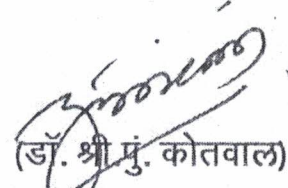 (डॉ. श्री. पुं. कोतवाल)